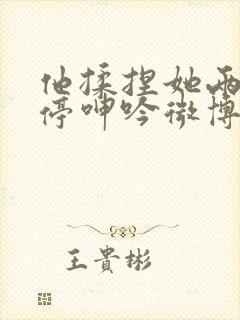 他揉捏她两
停呻吟微博
王貴彬